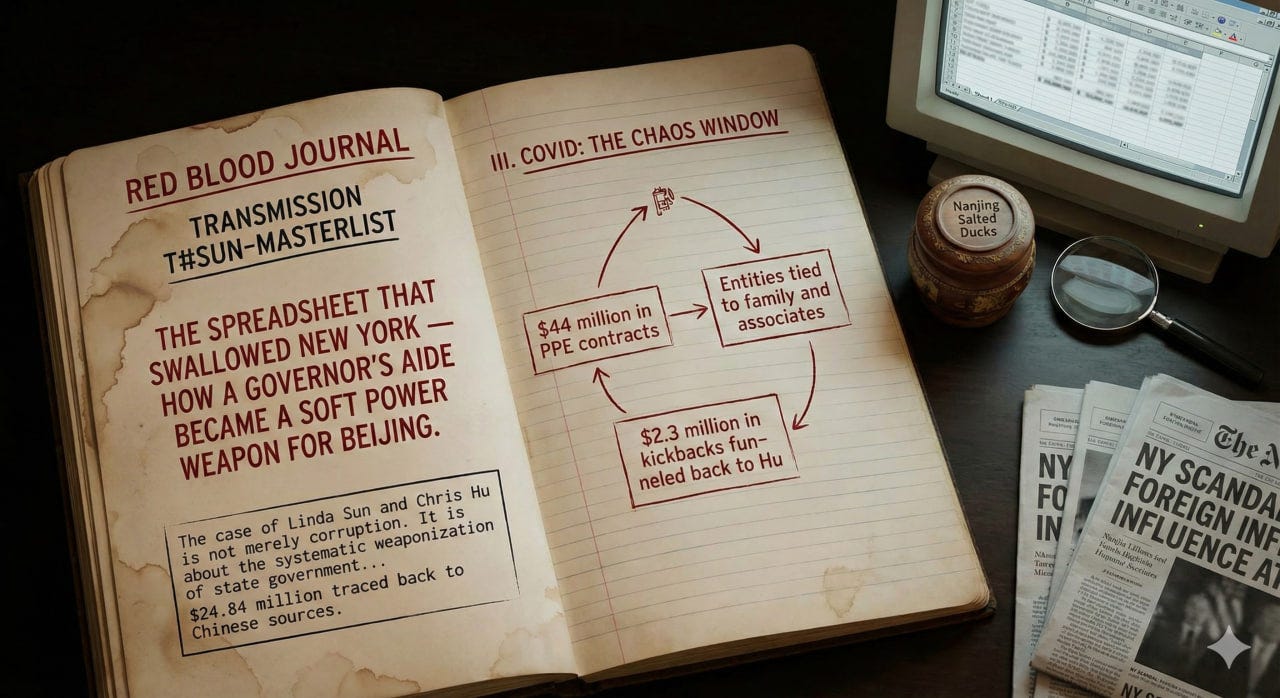 RED BLOOD JOURNAL
TRANSMISSION
T#SUN-MASTERLIST
THE SPREADSHEET THAT
SWALLOWED NEW YORK —
HOW A GOVERNOR'S AIDE
BECAME A SOFT POWER
WEAPON FOR BEIJING.
The case of Linda Sun and Chris Hu
is not merely corruption. It is
about the systematic weaponization
of state government...
$24.84 million traced back to
Chinese sources.
III. COVID: THE CHAOS WINDOW
$44 million in
PPE contracts
Entities tied
to family and
associates
$2.3 million in
kickbacks fun-
neled back to Hu
Nanjing
Salted
Ducks
NY
FO
IN
The N
NY SCANDA
FOREIGN INF
INFLUENCE AT